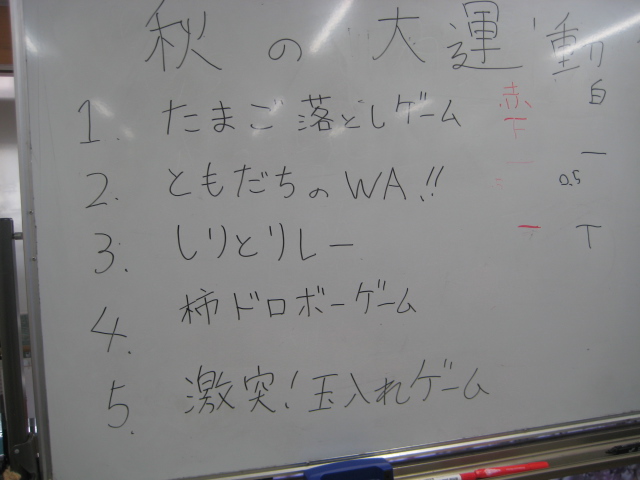 秋の大運動
赤 白
1. たまご落としゲーム
2. ともだちのWA!!
0.5
3. しりとりレー
4. 柿ドロボーゲーム
5. 激突!玉入れゲーム